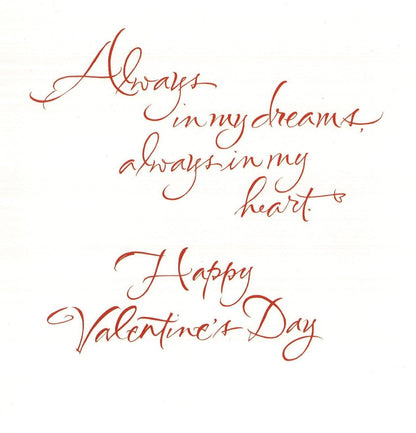 Always
in my dreams,
always in my
heart.
Happy
Valentine's Day